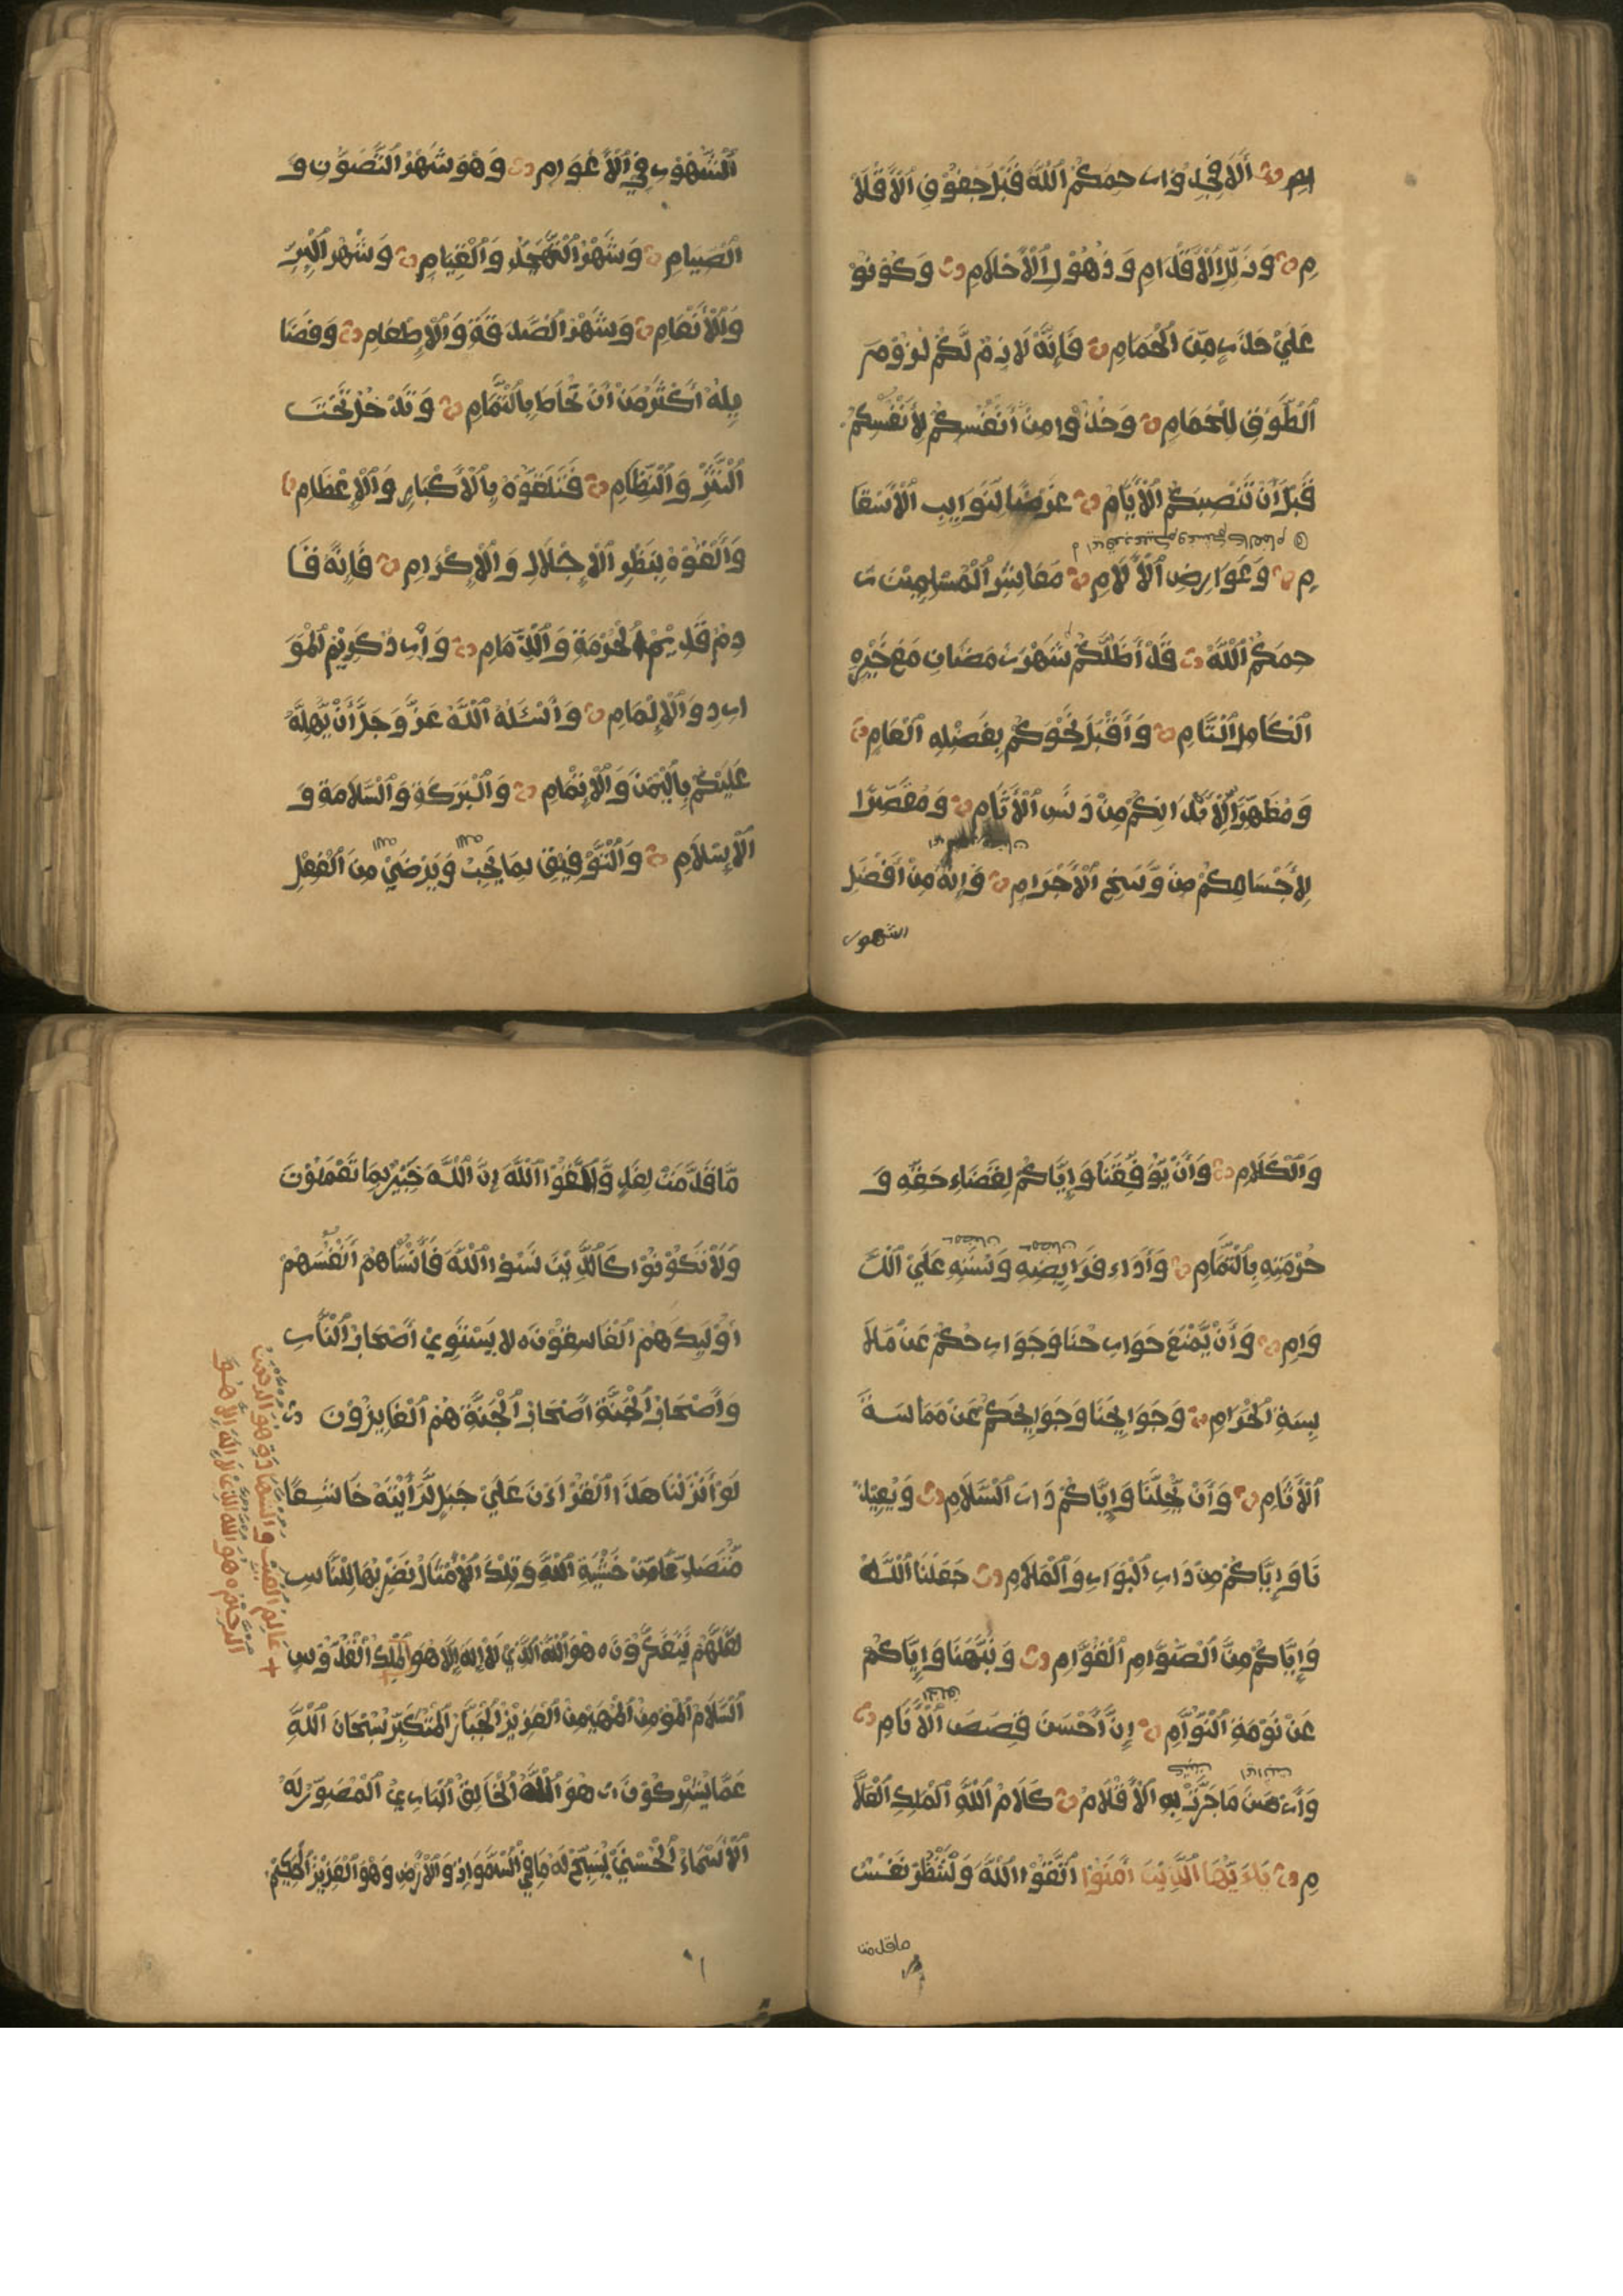 ـيم ۞ أَلَا فَجِدُّوا رحِمَكُمُ ٱللَّهُ قَبْلَ جُفُوفِ ٱلْأَقْلَا
مِ ۞ وَزَلَلِ ٱلْأَقْدَامِ وَذُهُولِ ٱلْأَحْلَامِ ۞ وَكُونُوْ
عَلَىٰ حَذَرٍ مِّنَ ٱلْحِمَامِ ۞ فَإِنَّهُ لَازِمٌ لَّكُمْ لُزُوْمَ
ٱلطَّوْقِ لِلْحَمَامِ ۞ وَخُذُوْا مِنْ أَنْفُسِكُمْ لِأَنْفُسِكُمْ
قَبْلَ أَنْ تَنْصِبَكُمُ ٱلْأَيَّامُ ۞ غَرَضًا لِنَوَايِبِ ٱلْأَسْقَا
مِ ۞ وَعَوَارِضِ ٱلْأٓلَامِ ۞ مَعَاشِرَ ٱلْمُسْلِمِيْنَ ر
حِمَكُمُ ٱللَّهُ ۞ قَدْ أَظَلَّكُمْ شَهْرُ رَمَضَانَ مَعَ خَيْرِهِ
ٱلْكَامِلِ ٱلتَّامِ ۞ وَأَقْبَلَ نَحْوَكُمْ بِفَضْلِهِ ٱلْعَامِ ۞
وَمُطَهِّرًا لِّأَبْدَانِكُمْ مِنْ دَنَسِ ٱلْأٰثَامِ ۞ وَمُقَصِّرًا
لِأَجْسَامِكُمْ مِنْ وَّسَخِ ٱلْأَجْرَامِ ۞ وَإِنَّهُ مِنْ أَفْضَلِ
الشهور
ٱلشُّهُوْرِ فِي ٱلْأَعْوَامِ ۞ وَهُوَ شَهْرُ ٱلتَّصَوُّنِ وَ
ٱلصِّيَامِ ۞ وَشَهْرُ ٱلتَّهَجُّدِ وَٱلْقِيَامِ ۞ وَشَهْرُ ٱلْبِرِّ
وَٱلْأَنْعَامِ ۞ وَشَهْرُ ٱلصَّدَقَةِ وَٱلْإِطْعَامِ ۞ وَفَضَا
يِلُهُ أَكْثَرُ مِنْ أَنْ تُحَاطَ بِٱلتَّمَامِ ۞ وَتَدْخُلَ تَحْتَ
ٱلنَّثْرِ وَٱلنِّظَامِ ۞ فَتَلَقَّوْهُ بِٱلْأِكْبَارِ وَٱلْإِعْظَامِ ۞
وَٱلْقَوْهُ بِنَظَرِ ٱلْإِجْلَالِ وَٱلْإِكْرَامِ ۞ فَإِنَّهُ قَا
دِمٌ قَدِيْمُ ٱلْحُرْمَةِ وَٱلذِّمَامِ ۞ وَزَائِرٌ كَرِيْمُ ٱلْمَوَ
ارِدِ وَٱلْإِلْمَامِ ۞ وَٱسْئَلُهُ ٱللَّهَ عَزَّ وَجَلَّ أَنْ يُّهِلَّهُ
عَلَيْكُمْ بِٱلْيُمْنِ وَٱلْإِتْمَامِ ۞ وَٱلْبَرَكَةِ وَٱلسَّلَامَةِ وَ
ٱلْإِسْلَامِ ۞ وَٱلتَّوْفِيْقِ بِمَا يُحِبُّ وَيَرْضَىٰ مِنَ ٱلْفِعْلِ
وَٱلْكَلَامِ ۞ وَأَنْ يُّوَفِّقَنَا وَإِيَّاكُمْ لِقَضَاءِ حَقِّهِ وَ
حُرْمَتِهِ بِٱلتَّمَامِ ۞ وَأَدَاءِ فَرَايِضِهِ وَسُنَنِهِ عَلَى ٱلدَّ
وَامِ ۞ وَأَنْ يَّمْنَعَ جَوَارِحَنَا وَجَوَارِحَكُمْ عَنْ مُلَا
بِسَةِ ٱلْحَرَامِ ۞ وَجَوَانِحَنَا وَجَوَانِحَكُمْ عَنْ مُمَاسَةِ
ٱلْأٰثَامِ ۞ وَأَنْ يُّحِلَّنَا وَإِيَّاكُمْ دَارَ ٱلسَّلَامِ ۞ وَيُعِيْذَ
نَا وَإِيَّاكُمْ مِنْ دَارِ ٱلْبَوَارِ وَٱلْمَلَامِ ۞ جَعَلَنَا ٱللَّهُ
وَإِيَّاكُمْ مِنَ ٱلصُّوَّامِ ٱلْقُوَّامِ ۞ وَنَبَّهَنَا وَإِيَّاكُمْ
عَنْ نَوْمَةِ ٱلنُّوَّامِ ۞ إِنَّ أَحْسَنَ قِصَصِ ٱلْأَنَامِ ۞
وَأَرْصَنَ مَا جَرَتْ بِهِ ٱلْأَقْلَامُ ۞ كَلَامُ ٱللَّهِ ٱلْمَلِكِ ٱلْعَلَّا
مِ ۞ يٰأَيُّهَا ٱلَّذِيْنَ اٰمَنُوْا ٱتَّقُوْا ٱللَّهَ وَلْتَنْظُرْ نَفْسٌ
ما قدمت
مَّا قَدَّمَتْ لِغَدٍ وَّاتَّقُوْا ٱللَّهَ إِنَّ ٱللَّهَ خَبِيْرٌ بِمَا تَعْمَلُوْنَ
وَلَا تَكُوْنُوْا كَٱلَّذِيْنَ نَسُوْا ٱللَّهَ فَأَنْسَاهُمْ أَنْفُسَهُمْ
أُوْلٰيِكَ هُمُ ٱلْفَاسِقُوْنَ ه لَا يَسْتَوِيْ أَصْحَابُ ٱلنَّارِ
وَأَصْحَابُ ٱلْجَنَّةِ أَصْحَابُ ٱلْجَنَّةِ هُمُ ٱلْفَايِزُوْنَ ۞
لَوْ أَنْزَلْنَا هٰذَا ٱلْقُرْاٰنَ عَلَىٰ جَبَلٍ لَّرَأَيْتَهُ خَاشِعًا
مُّتَصَدِّعًا مِّنْ خَشْيَةِ ٱللَّهِ وَتِلْكَ ٱلْأَمْثَالُ نَضْرِبُهَا لِلنَّاسِ
لَعَلَّهُمْ يَتَفَكَّرُوْنَ ه هُوَ ٱللَّهُ ٱلَّذِيْ لَا إِلٰهَ إِلَّا هُوَ ٱلْمَلِكُ ٱلْقُدُّوْسُ
ٱلسَّلَامُ ٱلْمُؤْمِنُ ٱلْمُهَيْمِنُ ٱلْعَزِيْزُ ٱلْجَبَّارُ ٱلْمُتَكَبِّرُ سُبْحَانَ ٱللَّهِ
عَمَّا يُشْرِكُوْنَ ه هُوَ ٱللَّهُ ٱلْخَالِقُ ٱلْبَارِئُ ٱلْمُصَوِّرُ لَهُ
ٱلْأَسْمَاءُ ٱلْحُسْنَىٰ يُسَبِّحُ لَهُ مَا فِي ٱلسَّمٰوَاتِ وَٱلْأَرْضِ وَهُوَ ٱلْعَزِيْزُ ٱلْحَكِيْمُ
+ عَالِمُ ٱلْغَيْبِ وَٱلشَّهَادَةِ هُوَ ٱلرَّحْمٰنُ
ٱلرَّحِيْمُ ه هُوَ ٱللَّهُ ٱلَّذِيْ لَا إِلٰهَ إِلَّا هُوَ